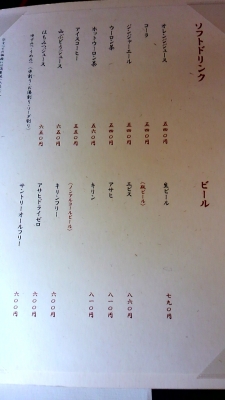 ソフトドリンク
オレンジジュース 五四〇円
コーラ 五四〇円
ジンジャーエール 五四〇円
ウーロン茶 五四〇円
ホットウーロン茶 五六〇円
アイスコーヒー 五五〇円
山ぶどうジュース 六五〇円
はちみつジュース 六五〇円
ビール
生ビール 七九〇円
(瓶ビール)
ヱビス 八六〇円
アサヒ 八一〇円
キリン 八一〇円
(ノンアルコールビール)
キリンフリー 六〇〇円
アサヒドライゼロ 六〇〇円
サントリーオールフリー 六〇〇円